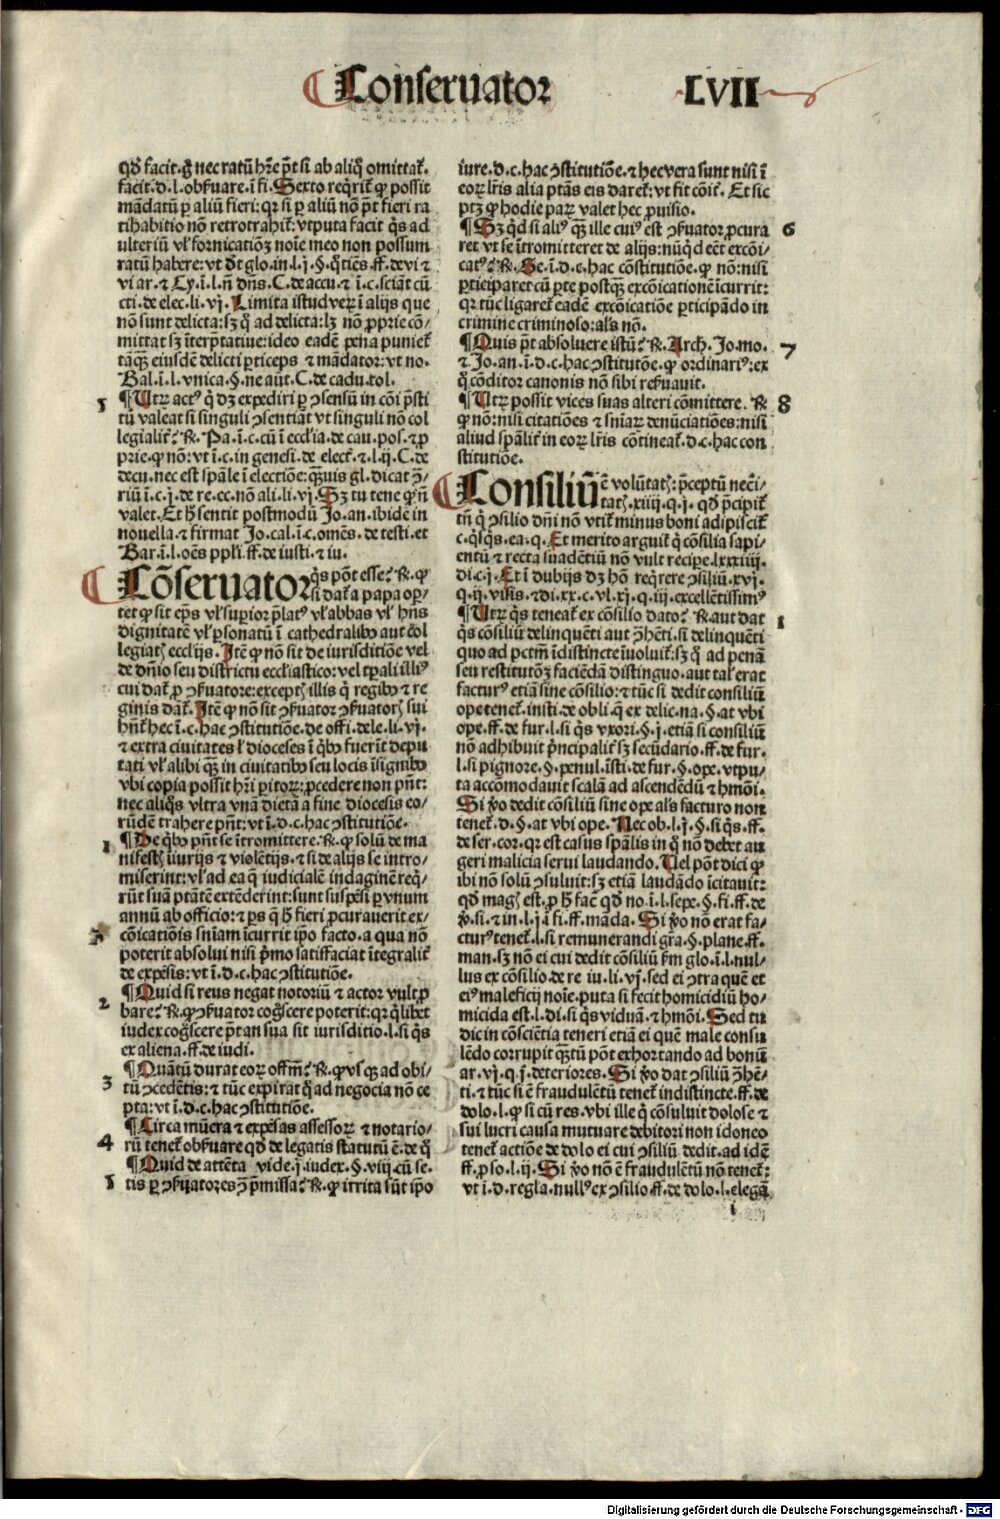 Conseruator LVII
qd̄ facit. g̊ nec ratū hr̄e pn̄t si ab aliq̊ omittat̉.
facit. d. l. obẜuare. ī fi. Sexto reqrit̉ ꝙ possit
mādatū ꝑ aliū fieri: qꝛ si ꝑ aliū nō pn̄t fieri ra
tihabitio nō retrotrahit̉: vtputa facit q̄s ad
ulteriū vl̉ fornicationē noīe meo non possum
ratū habere: vt dr̄ glo. in. l. j. §. q̊tiēs. ff. de vi ⁊
vi ar. ⁊ Cy. ī. l. n̄ dn̄s. C. de accu. ⁊ ī. c. sciāt cū
cti. de elec. li. vj. Limita istud verū ī alijs que
nō sunt delicta: sꝫ q̊ ad delicta: lꝫ nō ꝓprie cō/
mittat sꝫ īterp̄tatiue: ideo eadē pena puniet̉
tāq̄ꝫ eiusdē delicti ꝑticeps ⁊ mādator: vt no.
Bal. ī. l. vnica. §. ne aūt. C. de cadu. tol.
5 ¶ Utꝝ actꝰ q̄ dꝫ expediri ꝑ ↄsensū in cōi p̄sti
tū valeat si singuli ↄsentiāt vt singuli nō col
legialit̉? ℞. Pa. ī. c. cū ī eccl̉ia. de cau. pos. ⁊ ꝓ
prie. ꝙ nō: vt ī. c. in genesi. de elect̉. ⁊. l. ij. C. de
decu. nec est spāle ī electiōe: q̄ꝫuis gl. dicat ↄ̄
riū ī. c. j. de re. ec. nō ali. li. vj. Sꝫ tu tene ꝙ n̄
valet. Et h̊ sentit postmodū Jo. an. ibidē in
nouella ⁊ firmat Jo. cal. ī. c. omēs. de testi. et
Bar. ī. l. oēs ppl̉i. ff. de iusti. ⁊ iu.
Cōseruator q̄s pōt esse? ℞. ꝙ
si dat̉ a papa opꝛ/
tet ꝙ sit ep̄s vl̉ suꝑior p̄latꝰ vl̉ abbas vl̉ hn̄s
dignitatē vl̉ ꝑsonatū ī cathedralibꝰ aut col
legiatꝭ eccl̉ijs. Itē ꝙ nō sit de iurisditiōe vel
de dn̄io seu districtu eccl̉iastico: vel tꝑali illiꝰ
cui dat̉ ꝓ ↄẜuatore: exceptꝭ illis q̄ regibꝰ ⁊ re
ginis dāt̉. Itē ꝙ nō sit ↄẜuator ↄẜuatorꝭ sui
hn̄t̉ hec ī. c. hac ↄstitutiōe. de offi. dele. li. vj.
⁊ extra ciuitates l̉ dioceses ī q̄bꝰ fuerīt depu
tati vl̉ alibi q̄ꝫ in ciuitatibꝰ seu locis īsignibꝰ
vbi copia possit hr̄i ꝑitoꝝ: ꝓcedere non pn̄t:
nec aliq̄s vltra vnā dietā a fine diocesis eo/
rūdē trahere pn̄t: vt ī. d. c. hac ↄstitutiōe.
1 ¶ De q̄bꝰ pn̄t se ītromittere. ℞. ꝙ solū de ma
nifestꝭ iīurijs ⁊ violētijs. ⁊ si de alijs se intro/
miserint: vl̉ ad ea q̄ iudicialē indaginē req̄/
rūt suā ptātē extēderint: sunt suspēsi ꝑ vnum
annū ab officio: ⁊ ꝑs q̄ h̊ fieri ꝓcurauerit ex/
cōicatiōis sn̄iam īcurrit ip̄o facto. a qua nō
poterit absolui nisi p̄mo satisfaciat ītegralit̉
de expēsis: vt ī. d. c. hac ↄstitutiōe.
2 ¶ Quid si reus negat notoriū ⁊ actor vult ꝓ
bare? ℞. ꝙ ↄẜuator cog̊scere poterit: qꝛ q̄libet
iudex cog̊scere pn̄t an sua sit iurisditio. l. si q̄s
ex aliena. ff. de iudi.
3 ¶ Quātū durat eoꝝ offm̄? ℞. ꝙ vsqꝫ ad obi/
tū ↄcedētis: ⁊ tūc expirat q̊ ad negocia nō ce
pta: vt ī. d. c. hac ↄstitutiōe.
4 ¶ Circa mūera ⁊ expēsas assessoꝝ ⁊ notario/
rū tenet̉ obẜuare qd̄ de legatis statutū ē. de q̊
5 ¶ Quid de attēta vide. j. iudex. §. viij. cū se.
tis ꝑ ↄẜuatores ↄ̄ p̄missa? ℞. ꝙ irrita sūt ip̄o
iure. d. c. hac ↄstitutiōe. ⁊ hec vera sunt nisi ī
eoꝝ lr̄is alia ptās eis daret̉: vt fit cōit̉. Et sic
ptꝫ ꝙ hodie paꝝ valet hec ꝓuisio.
6 ¶ Sꝫ qd̄ si aliꝰ q̄ꝫ ille cuiꝰ est ↄẜuator ꝓcura
ret vt se ītromitteret de alijs: nūq̄d eēt excōi/
catꝰ? ℞. Se. ī. d. c. hac cōstitutiōe. ꝙ nō: nisi
ꝑticiparet cū ꝑte postqꝫ excōicationē īcurrit:
qꝛ tūc ligaret̉ eadē excōicatiōe ꝑticipādo in
crimine criminoso: al̉s nō.
7 ¶ Quis pn̄t absoluere istū? ℞. Arch. Jo. mo.
⁊ Jo. an. ī. d. c. hac ↄstitutōe. ꝙ ordinariꝰ: ex
q̊ cōditor canonis nō sibi reẜuauit.
8 ¶ Utꝝ possit vices suas alteri cōmittere. ℞
ꝙ nō: nisi citatiōes ⁊ sn̄iaꝝ denūciatiōes: nisi
aliud spālit̉ in eoꝝ lr̄is cōtineat̉. d. c. hac con
stitutiōe.
Consiliū ē volūtatꝭ: p̄ceptū nec̄i/
tatꝭ. xiiij. q. j. qd̄ p̄cipit̉
tn̄ q̄ ↄsilio dn̄i nō vtit̉ minus boni adipiscit̉
c. q̄sq̄s. ea. q. Et merito arguit̉ q̄ cōsilia sapi/
entū ⁊ recta suadētiū nō vult recipe. lxxxiiij.
di. c. j. Et ī dubijs dꝫ hō req̄rere ↄsiliū. xvj.
q. ij. visis. ⁊ di. xx. c. vl. xj. q. iij. excellētissimꝰ
1 ¶ Utꝝ q̄s teneat̉ ex cōsilio dato? ℞. aut dat
q̄s cōsiliū delinquēti aut ↄ̄hēti. si delinquēti
quo ad pctm̄ īdistincte īuoluit̉: sꝫ q̊ ad penā
seu restitutōꝫ faciēdā distinguo. aut tal̉ erat
facturꝰ etiā sine cōsilio: ⁊ tūc si dedit consiliū
ope tenet̉. insti. de obli. q̄ ex delic. na. §. at vbi
ope. ff. de fur. l. si q̄s vxori. §. j. etiā si consiliū
nō adhibuit p̄ncipalit̉ sꝫ secūdario. ff. de fur.
l. si pignore. §. penul. īsti. de fur. §. ope. vtpu/
ta accōmodauit scalā ad ascendēdū ⁊ hmōi.
Si v̊o dedit cōsiliū sine ope al̉s facturo non
tenet̉. d. §. at vbi ope. Nec ob. l. j. §. si q̄s. ff.
de ser. cor. qꝛ est casus spālis in q̊ nō debet au
geri malicia serui laudando. Uel pōt dici ꝙ
ibi nō solū ↄsuluit: sꝫ etiā laudādo īcitauit:
qd̄ magꝭ est. ꝓ h̊ fac̄ qd̄ no. ī. l. sepe. §. fi. ff. de
v̊. si. ⁊ in. l. j. ī fi. ff. māda. Si v̊o nō erat fa/
cturꝰ tenet̉. l. si remunerandi gr̄a. §. plane. ff.
man. sꝫ nō ei cui dedit cōsiliū ẜm glo. ī. l. nul/
lus ex cōsilio. de re iu. li. vj. sed ei ↄtra quē et
eiꝰ maleficij noīe. puta si fecit homicidiū ho/
micida est. l. di. si q̄s viduā. ⁊ hmōi. Sed tu
dic in cōsciētia teneri etiā ei quē male consu
lēdo corrupit q̄ꝫtū pōt exhortando ad bonū
ar. vj. q. j. deteriores. Si v̊o dat ↄsiliū ↄ̄hē/
ti. ⁊ tūc si ē fraudulētū tenet̉ indistincte. ff. de
dolo. l. ꝙ si cū res. vbi ille q̄ cōsuluit dolose ⁊
sui lucri causa mutuare debitori non idoneo
tenet̉ actiōe de dolo ei cui ↄsiliū dedit. ad idē
ff. ꝓ so. l. ij. Si v̊o nō ē fraudulētū nō tenet̉:
vt ī. d. regl̉a. nullꝰ ex ↄsilio. ff. de dolo. l. elegā
i
Digitalisierung gefördert durch die Deutsche Forschungsgemeinschaft - DFG